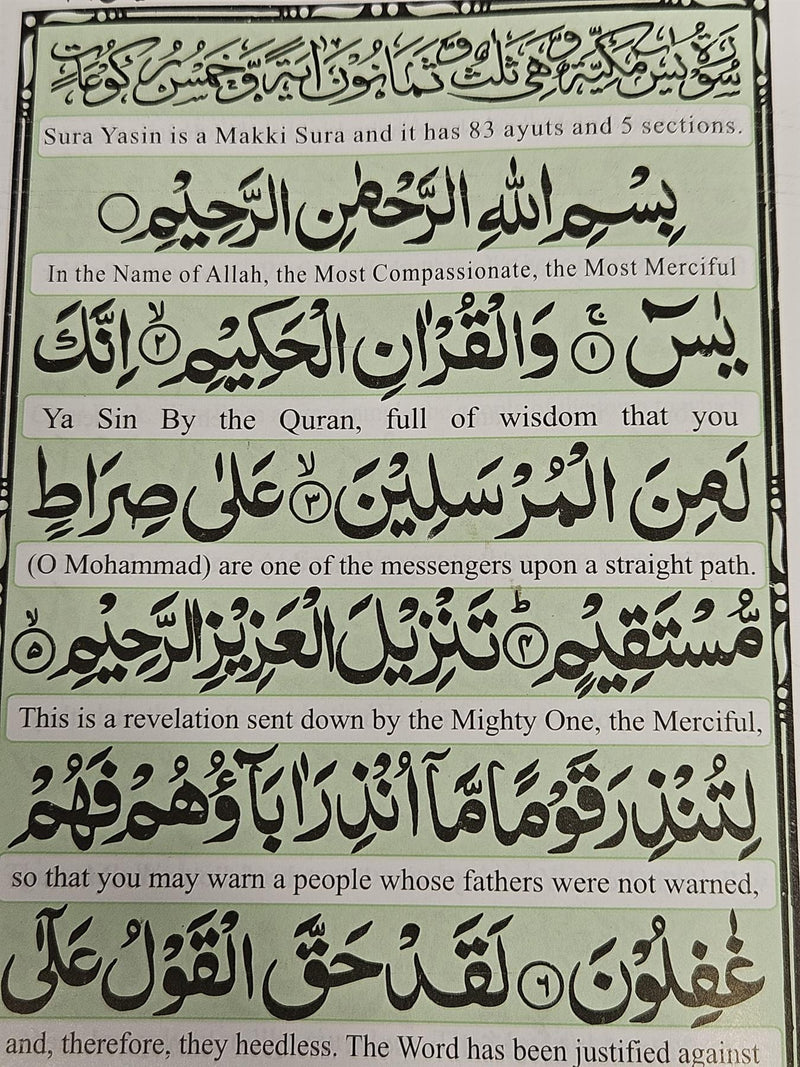 سُوْرَةُ يٰسٓ مَكِّيَّةٌ وَّهِيَ ثَلٰثٌ وَّثَمَانُوْنَ اٰيَةً وَّخَمْسُ رُكُوْعَاتٍ
Sura Yasin is a Makki Sura and it has 83 ayuts and 5 sections.
بِسْمِ اللّٰهِ الرَّحْمٰنِ الرَّحِيْمِ
In the Name of Allah, the Most Compassionate, the Most Merciful
يٰسٓ ۚ ﴿۱﴾ وَالْقُرْاٰنِ الْحَكِيْمِ ۙ ﴿۲﴾ اِنَّكَ
Ya Sin By the Quran, full of wisdom that you
لَمِنَ الْمُرْسَلِيْنَ ۙ ﴿۳﴾ عَلٰى صِرَاطٍ
(O Mohammad) are one of the messengers upon a straight path.
مُّسْتَقِيْمٍ ؕ ﴿۴﴾ تَنْزِيْلَ الْعَزِيْزِ الرَّحِيْمِ ۙ ﴿۵﴾
This is a revelation sent down by the Mighty One, the Merciful,
لِتُنْذِرَ قَوْمًا مَّاۤ اُنْذِرَ اٰبَآؤُهُمْ فَهُمْ
so that you may warn a people whose fathers were not warned,
غٰفِلُوْنَ ﴿۶﴾ لَقَدْ حَقَّ الْقَوْلُ عَلٰٓى
and, therefore, they heedless. The Word has been justified against